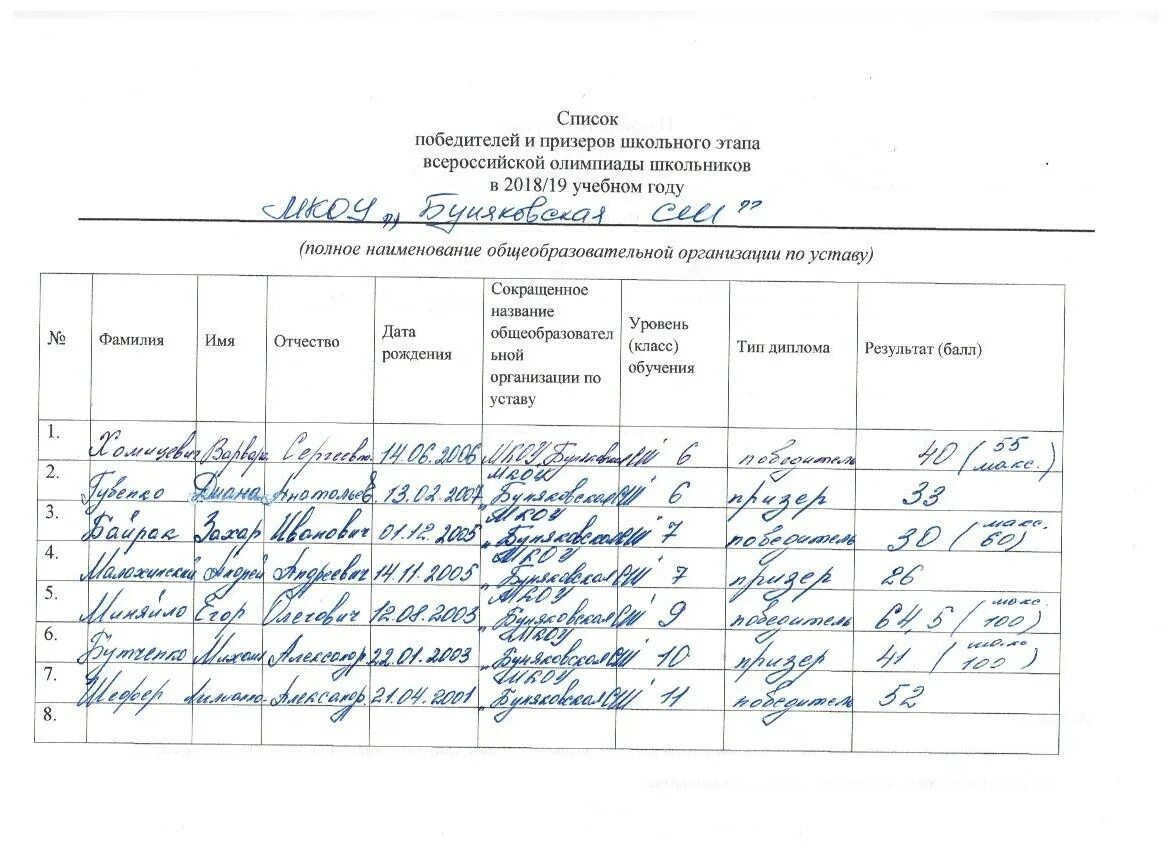 Список
победителей и призеров школьного этапа
всероссийской олимпиады школьников
в 2018/19 учебном году
МКОУ „Буняковская СШ”
(полное наименование общеобразовательной организации по уставу)
№ Фамилия Имя Отчество Дата рождения Сокращенное название общеобразовательной организации по уставу Уровень (класс) обучения Тип диплома Результат (балл)
1. Хомицевич Варвара Сергеевн. 14.06.2006 МКОУ „Буняковская СШ" 6 победитель 40 (55 макс.)
2. Губенко Диана Анатольев. 13.02.2007 МКОУ „Буняковская СШ" 6 призер 33
3. Байрак Захар Иванович 01.12.2005 МКОУ „Буняковская СШ" 7 победитель 30 (макс. 60)
4. Малохинский Андрей Андреевич 14.11.2005 МКОУ „Буняковская СШ" 7 призер 26
5. Миняйло Егор Олегович 12.08.2003 МКОУ „Буняковская СШ" 9 победитель 64,5 (макс. 100)
6. Бутченко Михаил Александр. 22.01.2003 МКОУ „Буняковская СШ" 10 призер 41 (макс 100)
7. Шефер Александр. 21.04.2001 МКОУ „Буняковская СШ" 11 победитель 52
8.